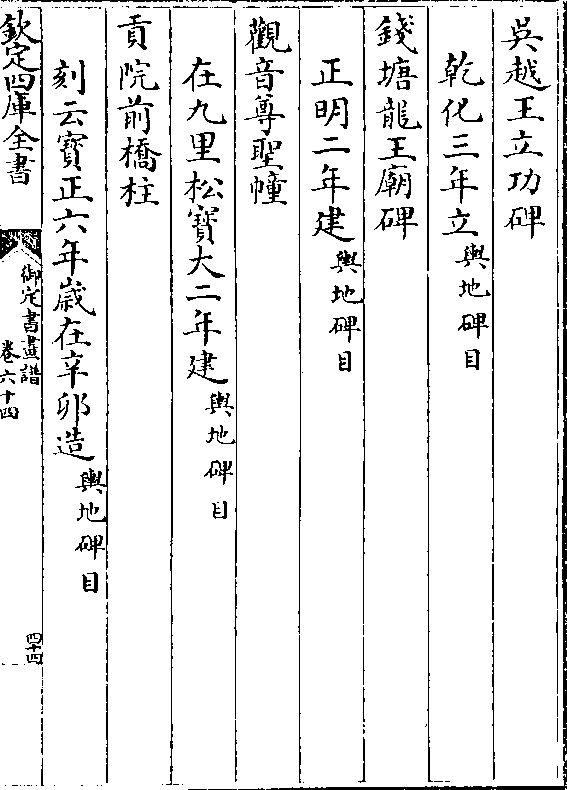 吳越王立功碑
乾化三年立輿地碑目
錢塘龍王廟碑
正明二年建輿地碑目
觀音尊聖幢
在九里松寶大二年建輿地碑目
貢院前橋柱
刻云寶正六年歲在辛卯造輿地碑目
欽定四庫全書
御定書畫譜
卷六十四
四十四